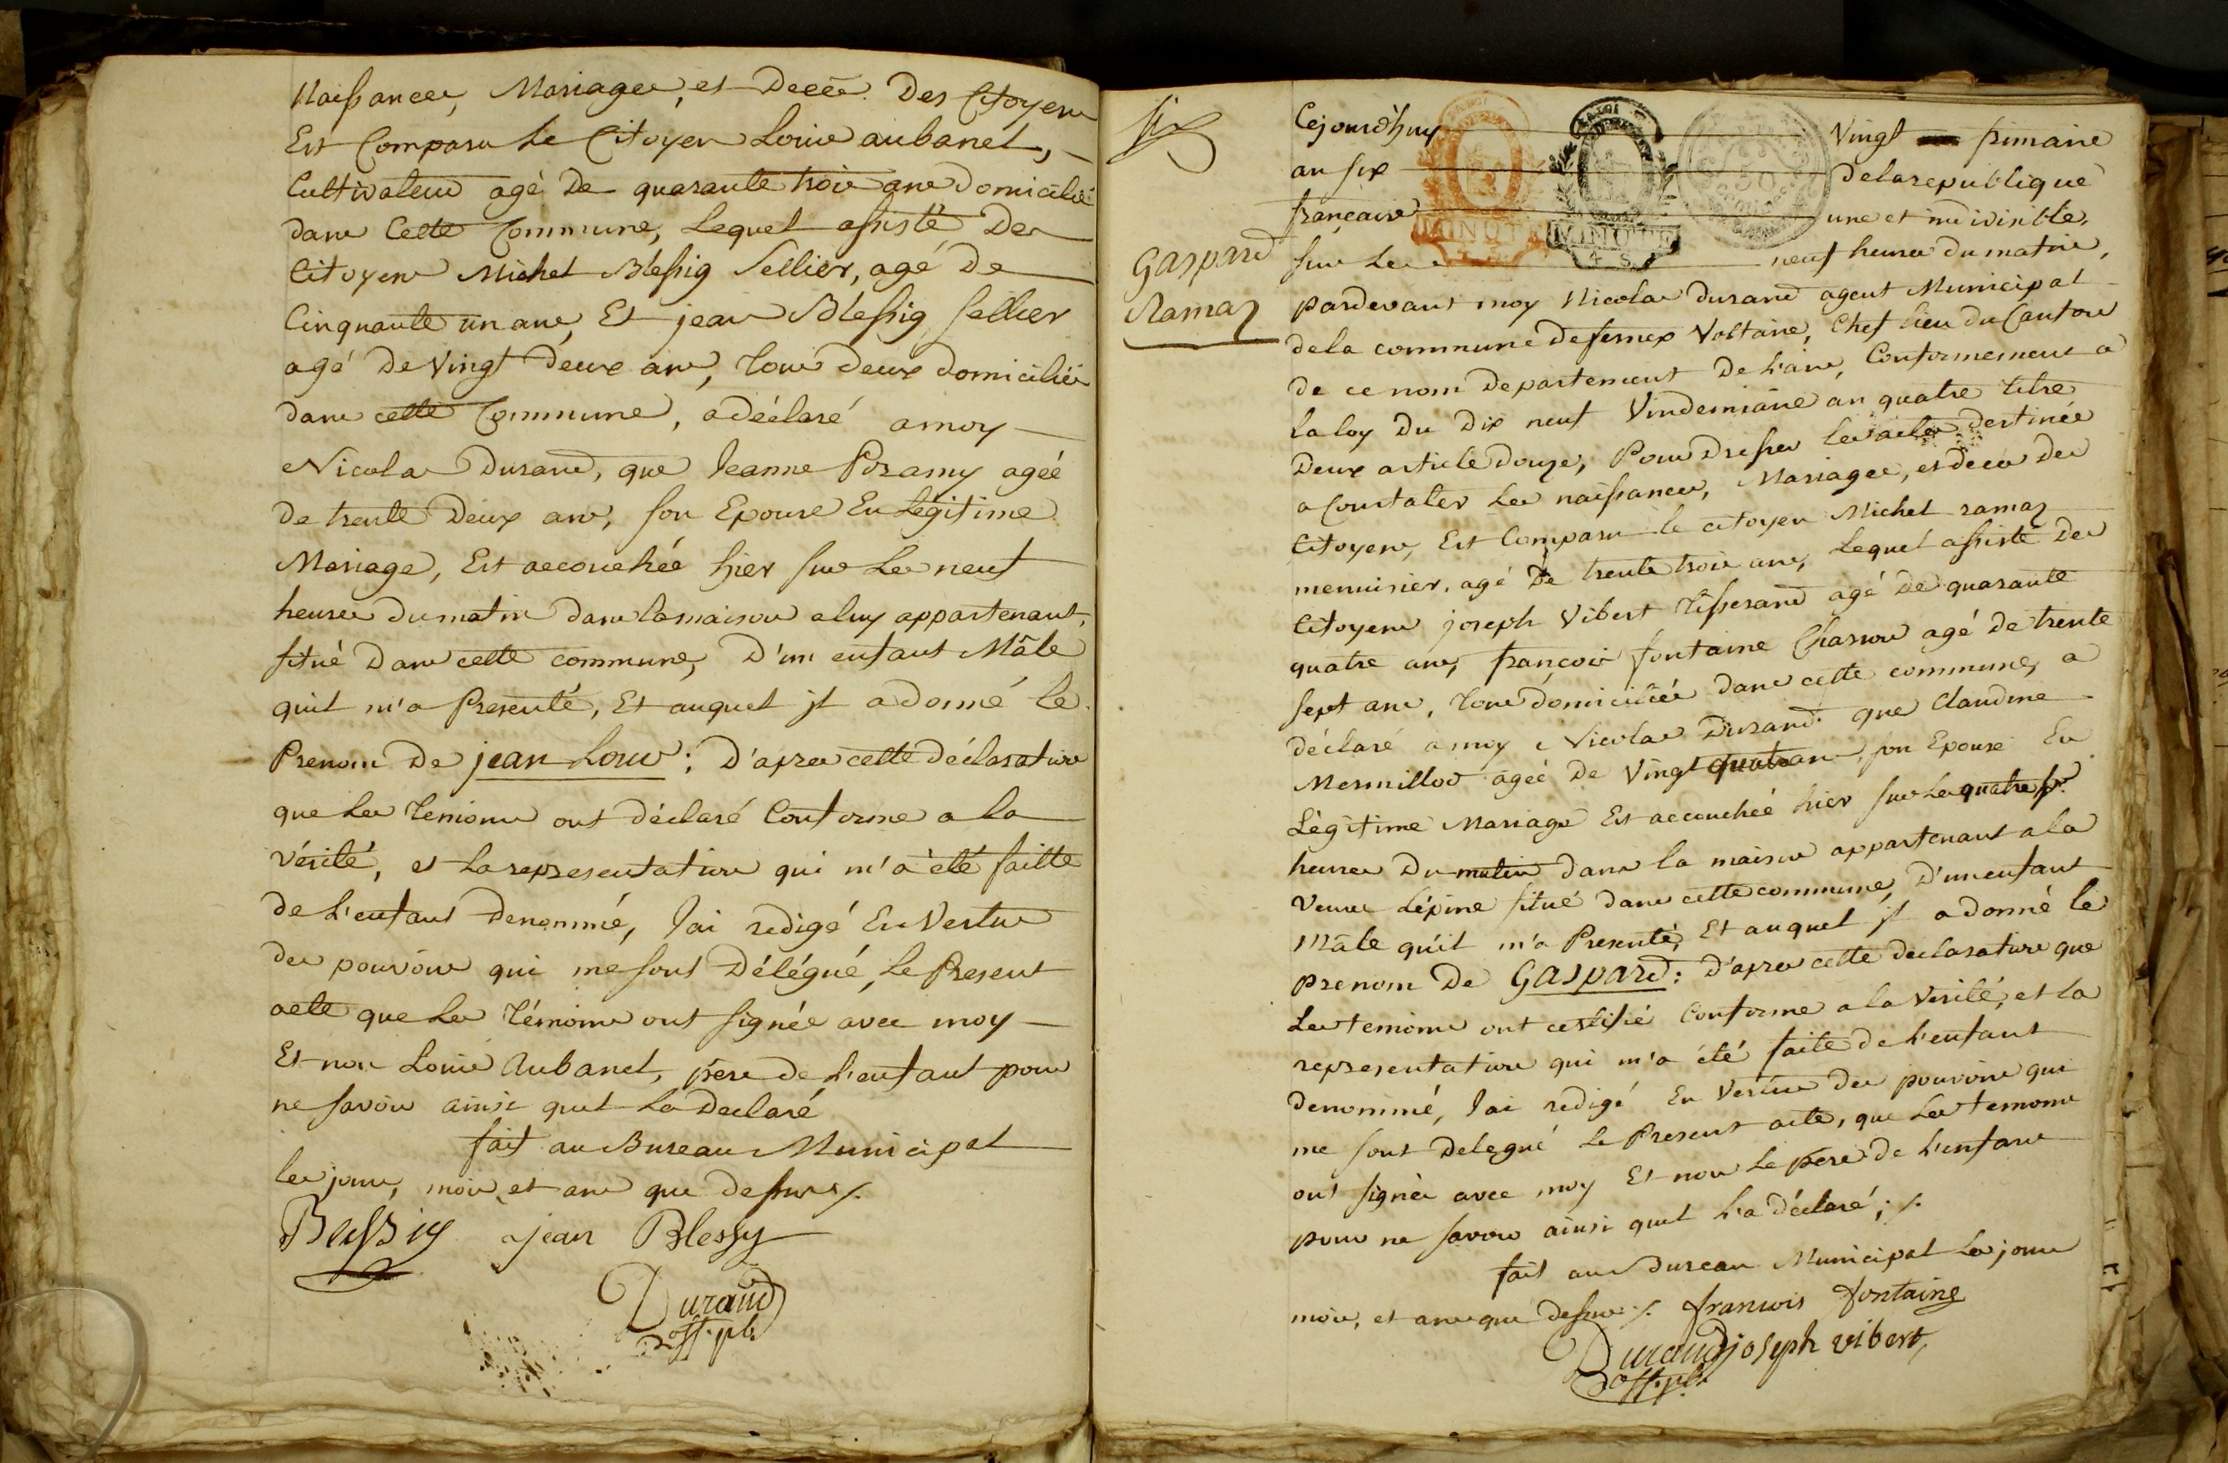 Naissances, Mariages, et Decès Des Citoyens
Est Comparu Le Citoyen Louis aubanel,
Cultivateur agé De quarante trois ans domicilié
dans Cette Commune, Lequel assisté Des
Citoyens Michel Blessig Sellier, agé De
Cinquante un ans, Et jean Blessig sellier
agé De Vingt Deux ans, tous Deux Domiciliés
dans cette Commune, a déclaré a moy
Nicolas Durand, que Jeanne Poramy ageé
De trente Deux ans, son Epouse En Légitime
Mariage, Est accouchée hier sur Les neuf
heures du matin dans la maison a luy appartenant,
situé Dans cette commune, D'un enfant Mâle
qu'il m'a Presenté, Et auquel il a donné le
Prenom De jean Louis; D'apres cette déclaration
que Les Temoins ont déclaré Conforme a la
vérité, et La representation qui m'a été faitte
De L'enfant Denommé, J'ai redigé En Vertu
des pouvoirs qui me sont Délégué, Le Present
acte que Les Témoins ont signée avec moy
Et non Louis Aubanel, pere de L'enfant pour
ne savoir ainsi quil La Declaré
fait au Bureau Municipal
les jour, mois, et ans que dessus ⁒
BlesSig jean Blessy
Durand
off. pb.
six
Cejourd'huy Vingt frimaire
an six De la republique
francaise une et indivisible,
sur Les neuf heures du matin,
Gaspard
Ramaz
pardevant moy Nicolas Durand agent Municipal
de la commune De fernex Voltaire, Chef lieu du Canton
de ce nom Departement De L'ain, Conformement a
La loy Du Dix neuf Vindemiaire an quatre titre
Deux article Douze, Pour Dresser les actes destinée
a Constater Les naissances, Mariages, et deces des
Citoyens, Est Comparu le citoyen Michel ramaz
menuisier, agé De trente trois ans, Lequel assisté Des
Citoyens joseph Vibert Tisserand agé De quarante
quatre ans, françois fontaine Charron agé De trente
sept ans, tous Domiciliés dans cette commune, a
déclaré a moy Nicolas Durand que Claudine
Mermillod ageé De Vingt quatre ans, son Epouse En
Légitime Mariage Est accouchée hier sur Les quatre
heures Du matin dans la maison appartenant a la
Veuve Lépine situé dans cette commune, D'un enfant
Mâle qu'il m'a Presenté, Et auquel il a donné le
prenom De Gaspard: D'apres cette declaration que
Les temoins ont certifié Conforme a la Verité, et la
representation qui m'a été faite de L'enfant
Denommé, J'ai redigé En Vertu des pouvoirs qui
me sont Delegué Le Present acte, que Les temoins
ont signée avec moy Et non Le pere de L'enfant
pour ne savoir ainsi quil L'a déclaré; ⁒
fait au Bureau Municipal Les jour
mois, et ans que dessus ⁒ francois fontaine
Durand joseph vibert
off. pb.